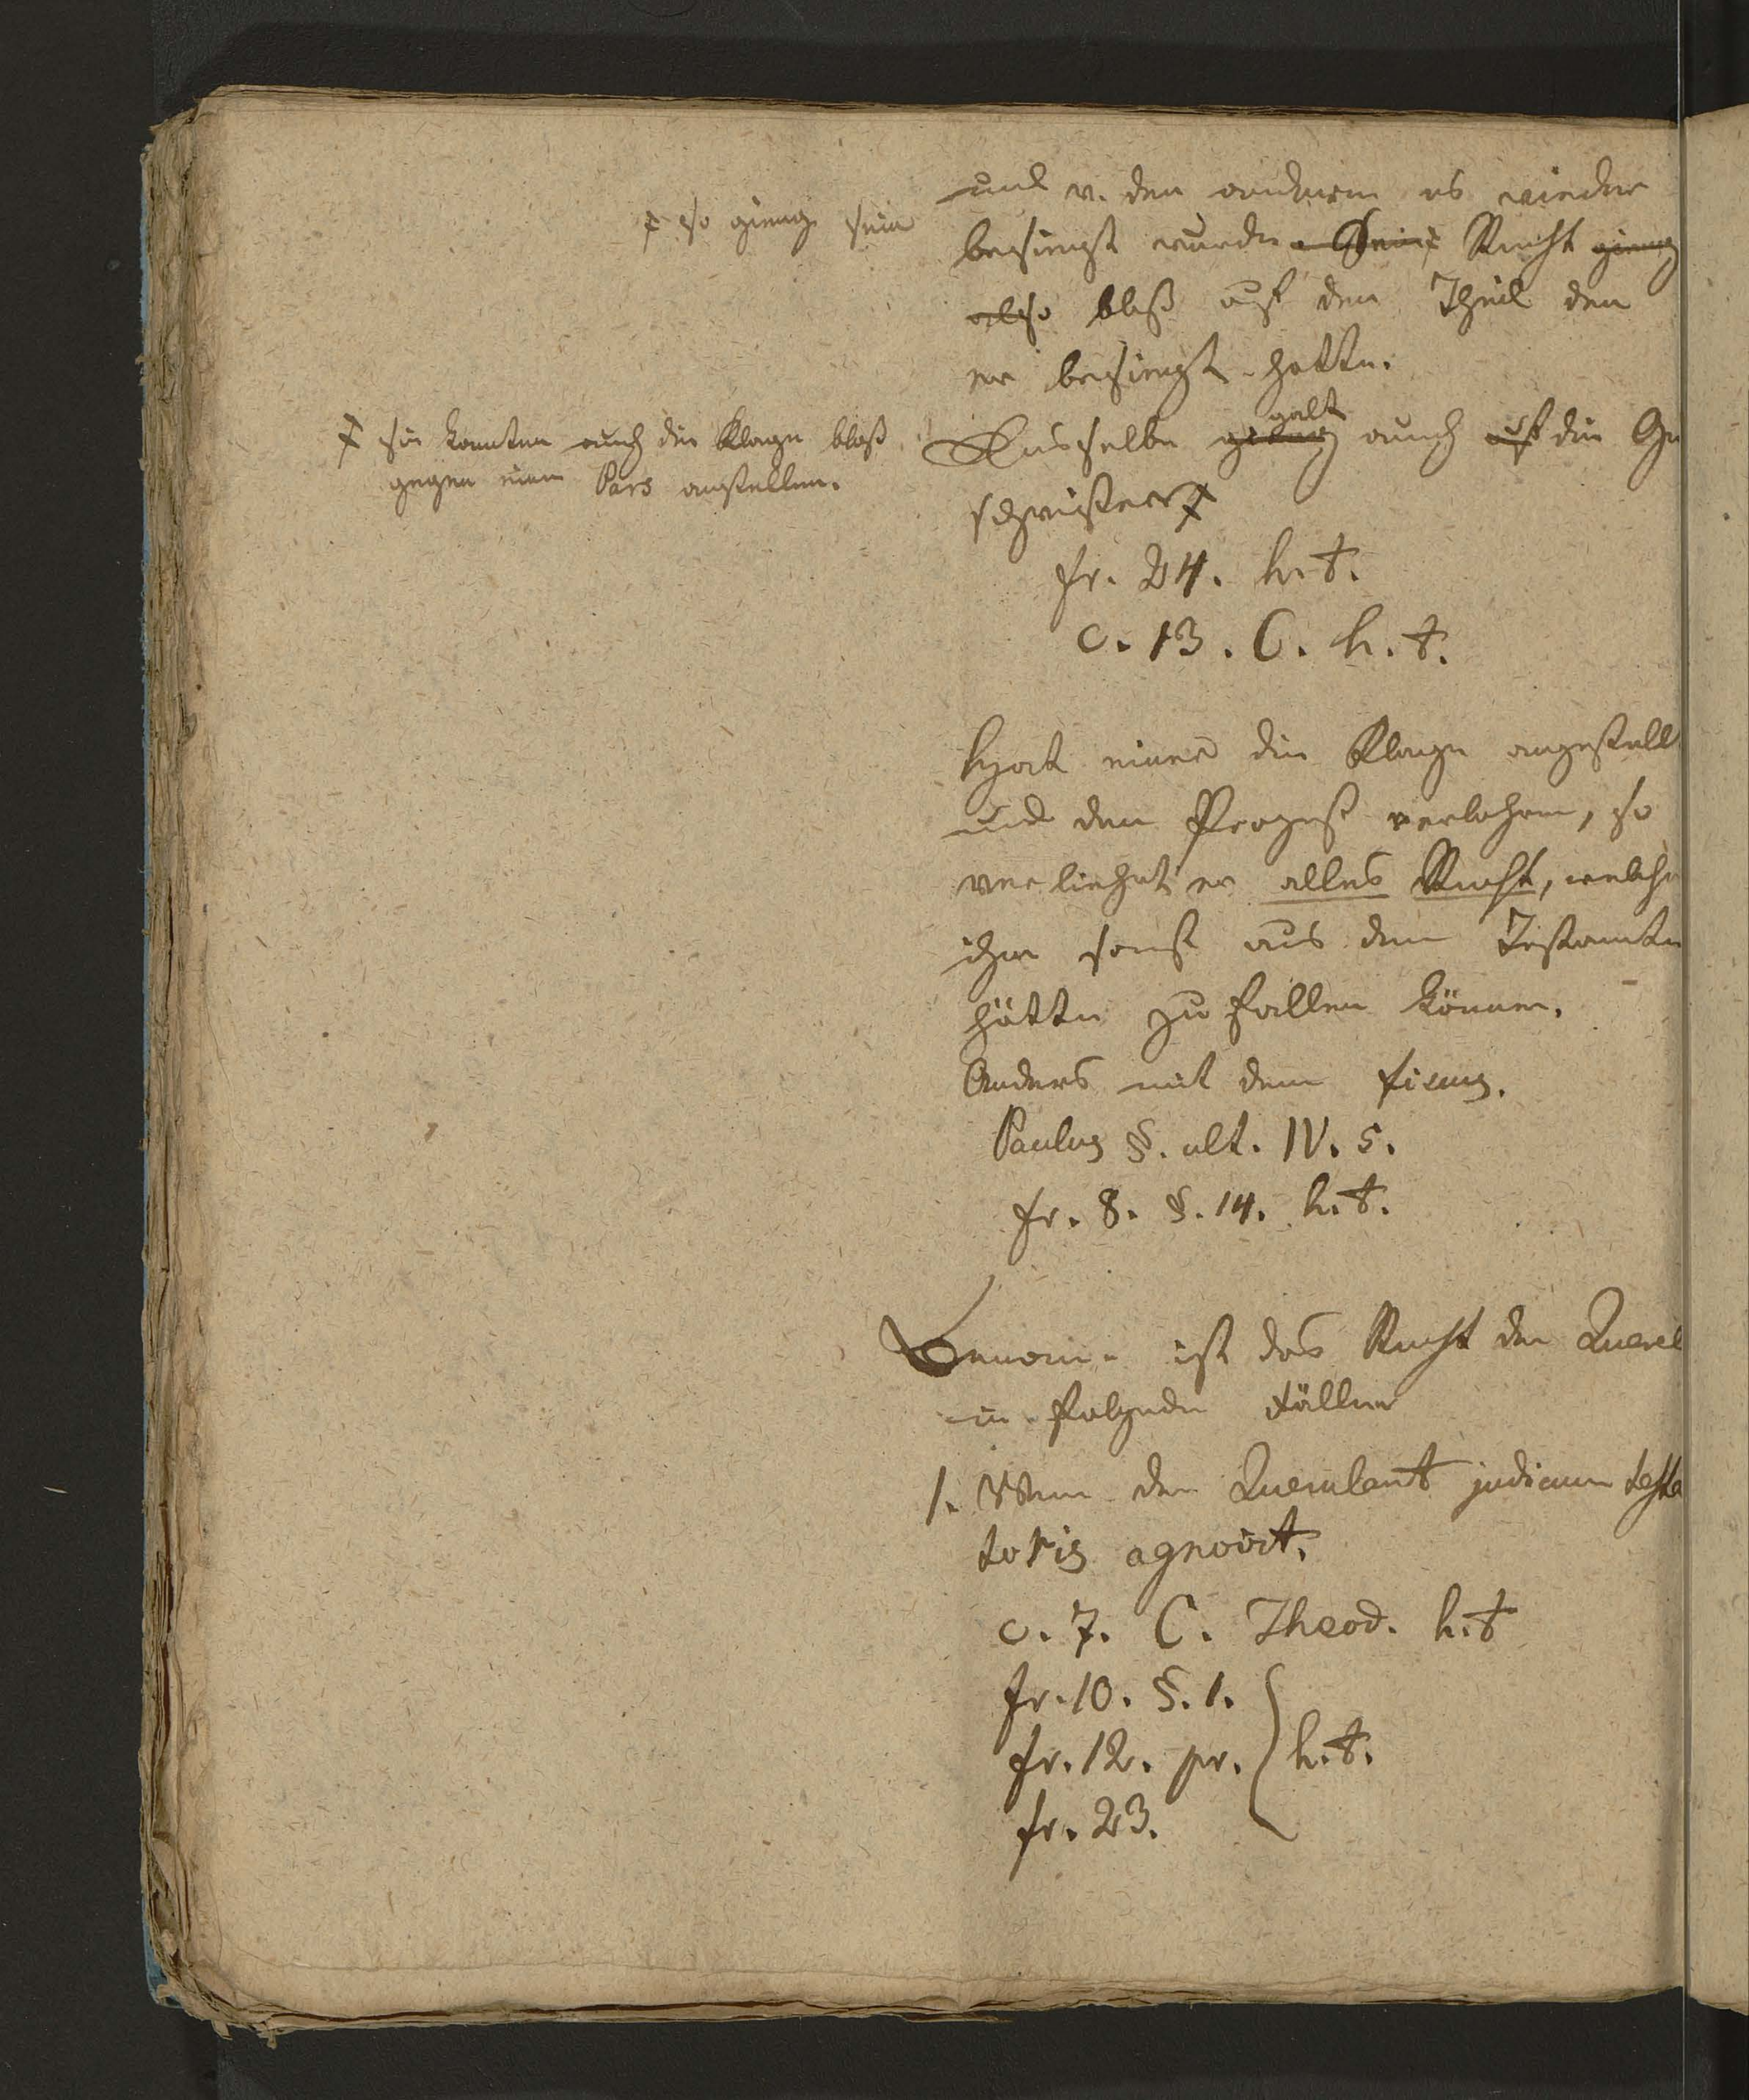 und v. den anderen es wieder
҂ so gieng sein
besiegt wurde. Sein Recht gieng
also bloß auf den Theil den
er besiegt hatte.
҂ sie konnten auch die Klage bloß
gegen einen Pars anstellen.
Dasselbe galt auch auf die Ge
schwister ҂
fr. 24. h. t.
c. 13. C. h. t.
Hat einer die Klage angestellt
und den Prozeß verlohren, so
verliehrt er alles Recht, welche
ihm sonst aus dem Testamte
hätte zu fallen können.
Anders mit dem fiscus.
Paulus §. ult. IV. 5.
fr. 8. §. 14. h. t.
ist das Recht der Querel
in folgende Fällen
1. Wenn der Querulant judicium testa
toris agnovit.
c. 7. C. Theod. h. t
fr. 10. §. 1.
fr. 12. pr. } h. t.
fr. 23.